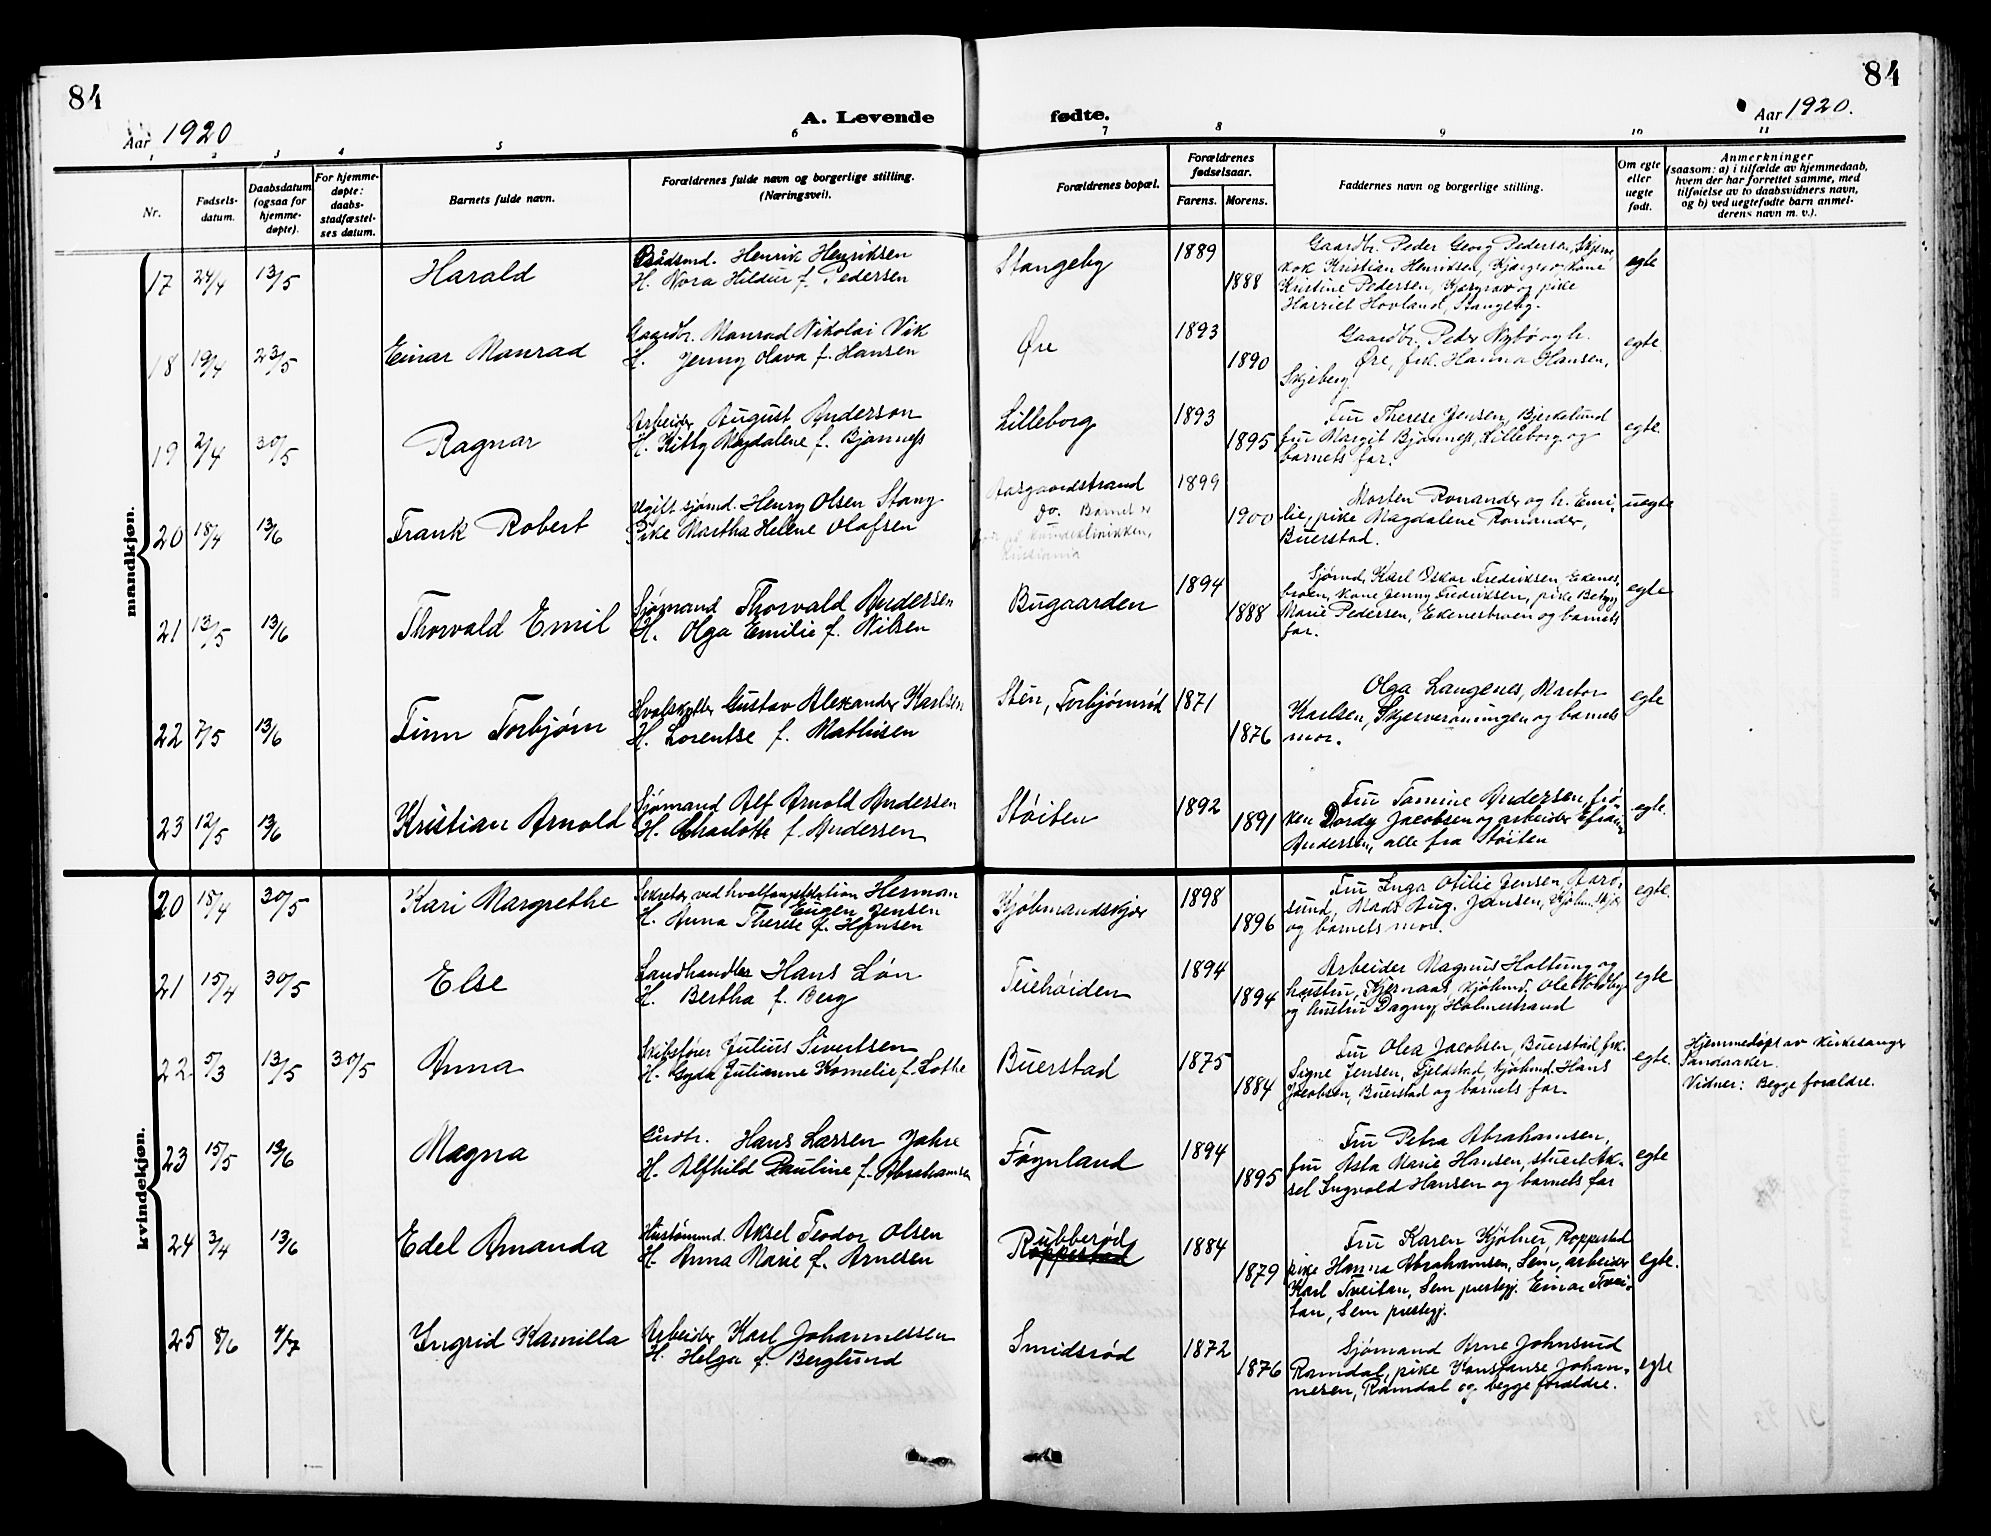 84
84
Aar 1920
A. Levende
fødte.
Aar 1920.
1 2 3 4 5 6 7 8 9 10 11
Nr.
Fødsels-
datum.
Daabsdatum
(ogsaa for
hjemme-
døpte).
For hjemme-
døpte:
daabs-
stadfæstel-
ses datum.
Barnets fulde navn.
Forældrenes fulde navn og borgerlige stilling.
(Næringsveil).
Forældrenes bopæl.
Forældrenes
fødselsaar.
Farens. Morens.
Faddernes navn og borgerlige stilling.
Om egte
eller
uegte
født.
Anmerkninger
(saasom: a) i tilfælde av hjemmedaab,
hvem der har forrettet samme, med
tilføielse av to daabsvidners navn,
og b) ved uegtefødte barn anmel-
derens navn m. v.).
mandkjøn.
17 24/4 13/5 Harald
Bådsmd. Henrik Henriksen
H. Nora Hildur f. Pedersen
Stangeby 1889 1888
Gaardbr. Peder Georg Pedersen,
kok Kristian Henriksen, kone
Kristine Pedersen, og pike
Harriet Hovland, Stangeby.
egte
18 19/4 23/5 Einar Manrad
Gaardbr. Manrad Nikolai Vik
H. Jenny Olava f. Hansen
Øre 1893 1890
Gaardbr. Peder Nybø og h.
Øre, frk. Hanna Hansen,
Skjeberg.
egte.
19 2/4 30/5 Ragnar
Arbeider August Anderson
H. Kitty Magdalene f. Bjønness
Lilleborg 1893 1895
Fru Therese Jensen, Bjerkelund
fru Margit Bjønness, Lilleborg og
barnets far.
egte.
20 18/4 13/6 Frank Robert
Ugift sjømd. Henry Olsen Stang
Pike Martha Helene Olafsen
Aasgaardstrand
Do. Barnet er
på kvindeklinikken,
Kristiania
1899 1900
Morten Ronander og h. Emi-
lie, pike Magdalene Ronander,
Buerstad.
uegte
21 13/5 13/6 Thorvald Emil
Sjømand Thorvald Andersen
H. Olga Emilie f. Nilsen
Bugaarden 1894 1888
Sjømd. Karl Oskar Fredriksen, Ekenes-
broen, kone Jenny Fredriksen, pike Betzy
Marie Pedersen, Ekenesbroen og barnets
far.
egte
22 7/5 13/6 Finn Torbjørn
Hvalskytter Gustav Alexander Karlsen
H. Lorentse f. Mathisen
Sten, Torbjørnrød 1871 1876
Olga Langenes, Martor
Karlsen, og barnets
mor.
egte
23 12/5 13/6 Kristian Arnold
Sjømand Alf Arnold Andersen
H. Charlotte f. Andersen
Støiten 1892 1891
Fru Tomine Andersen, frø-
ken Dordy Jacobsen og arbeider Efraim
Andersen, alle fra Støiten
egte.
kvindekjøn.
20 15/4 30/5 Kari Margrethe
Sekretær ved hvalfangststation Herman
Eugen Jensen
H. Anna Therese f. Hansen
Kjøbmandskjær 1898 1896
Fru Inga Otilie Jensen, Aarø-
sund, Mads Aug. Jansen, Kjøbm.skjær
og barnets mor.
egte.
21 15/4 30/5 Else
Landhandler Hans Løn
H. Bertha f. Berg
Teiehøiden 1894 1894
Arbeider Magnus Holtung og
hustru, Kjernaas, kjøbmd. Ole Noldby
og hustru Dagny, Holmestrand
egte
22 5/3 13/5 30/5 Anna
Skibsfører Julius Sivertsen
H. Gyda Julianne Kornelie f. Lothe
Buerstad 1875 1884
Fru Olea Jacobsen, Buerstad, frk.
Signe Jensen, Fjeldstad, kjøbmd. Hans
Jacobsen, Buerstad og barnets far.
egte.
Hjemmedøpt av kirkesanger
Sandaaker.
Vidner: Begge forældre.
23 15/5 13/6 Magna
Gurdbr. Hans Larsen Jahre
H. Alfhild Pauline f. Abrahamsen
Føynland 1894 1895
Fru Petra Abrahamsen,
fru Asta Marie Hansen, stuert Ak-
sel Ingvald Hansen og barnets far
egte
24 3/4 13/6 Edel Amanda
Hustømmd. Aksel Teodor Olsen
H. Anna Marie f. Arnesen
Rubberød
Roppestad
1884 1879
Fru Karen Kjølner, Roppestad
pike Hanna Abrahamsen, Sem, arbeider
Karl Tveitan, Sem prestegj. Einar Tvei-
tan, Sem prestegj.
egte.
25 8/6 4/7 Ingrid Kamilla
Arbeider Karl Johannessen
H. Helga f. Berglund
Smidsrød 1872 1876
Sjømand Arne Johnsrud
Ramdal, pike Konstanse Johan-
nesen, Ramdal og begge forældre.
egte